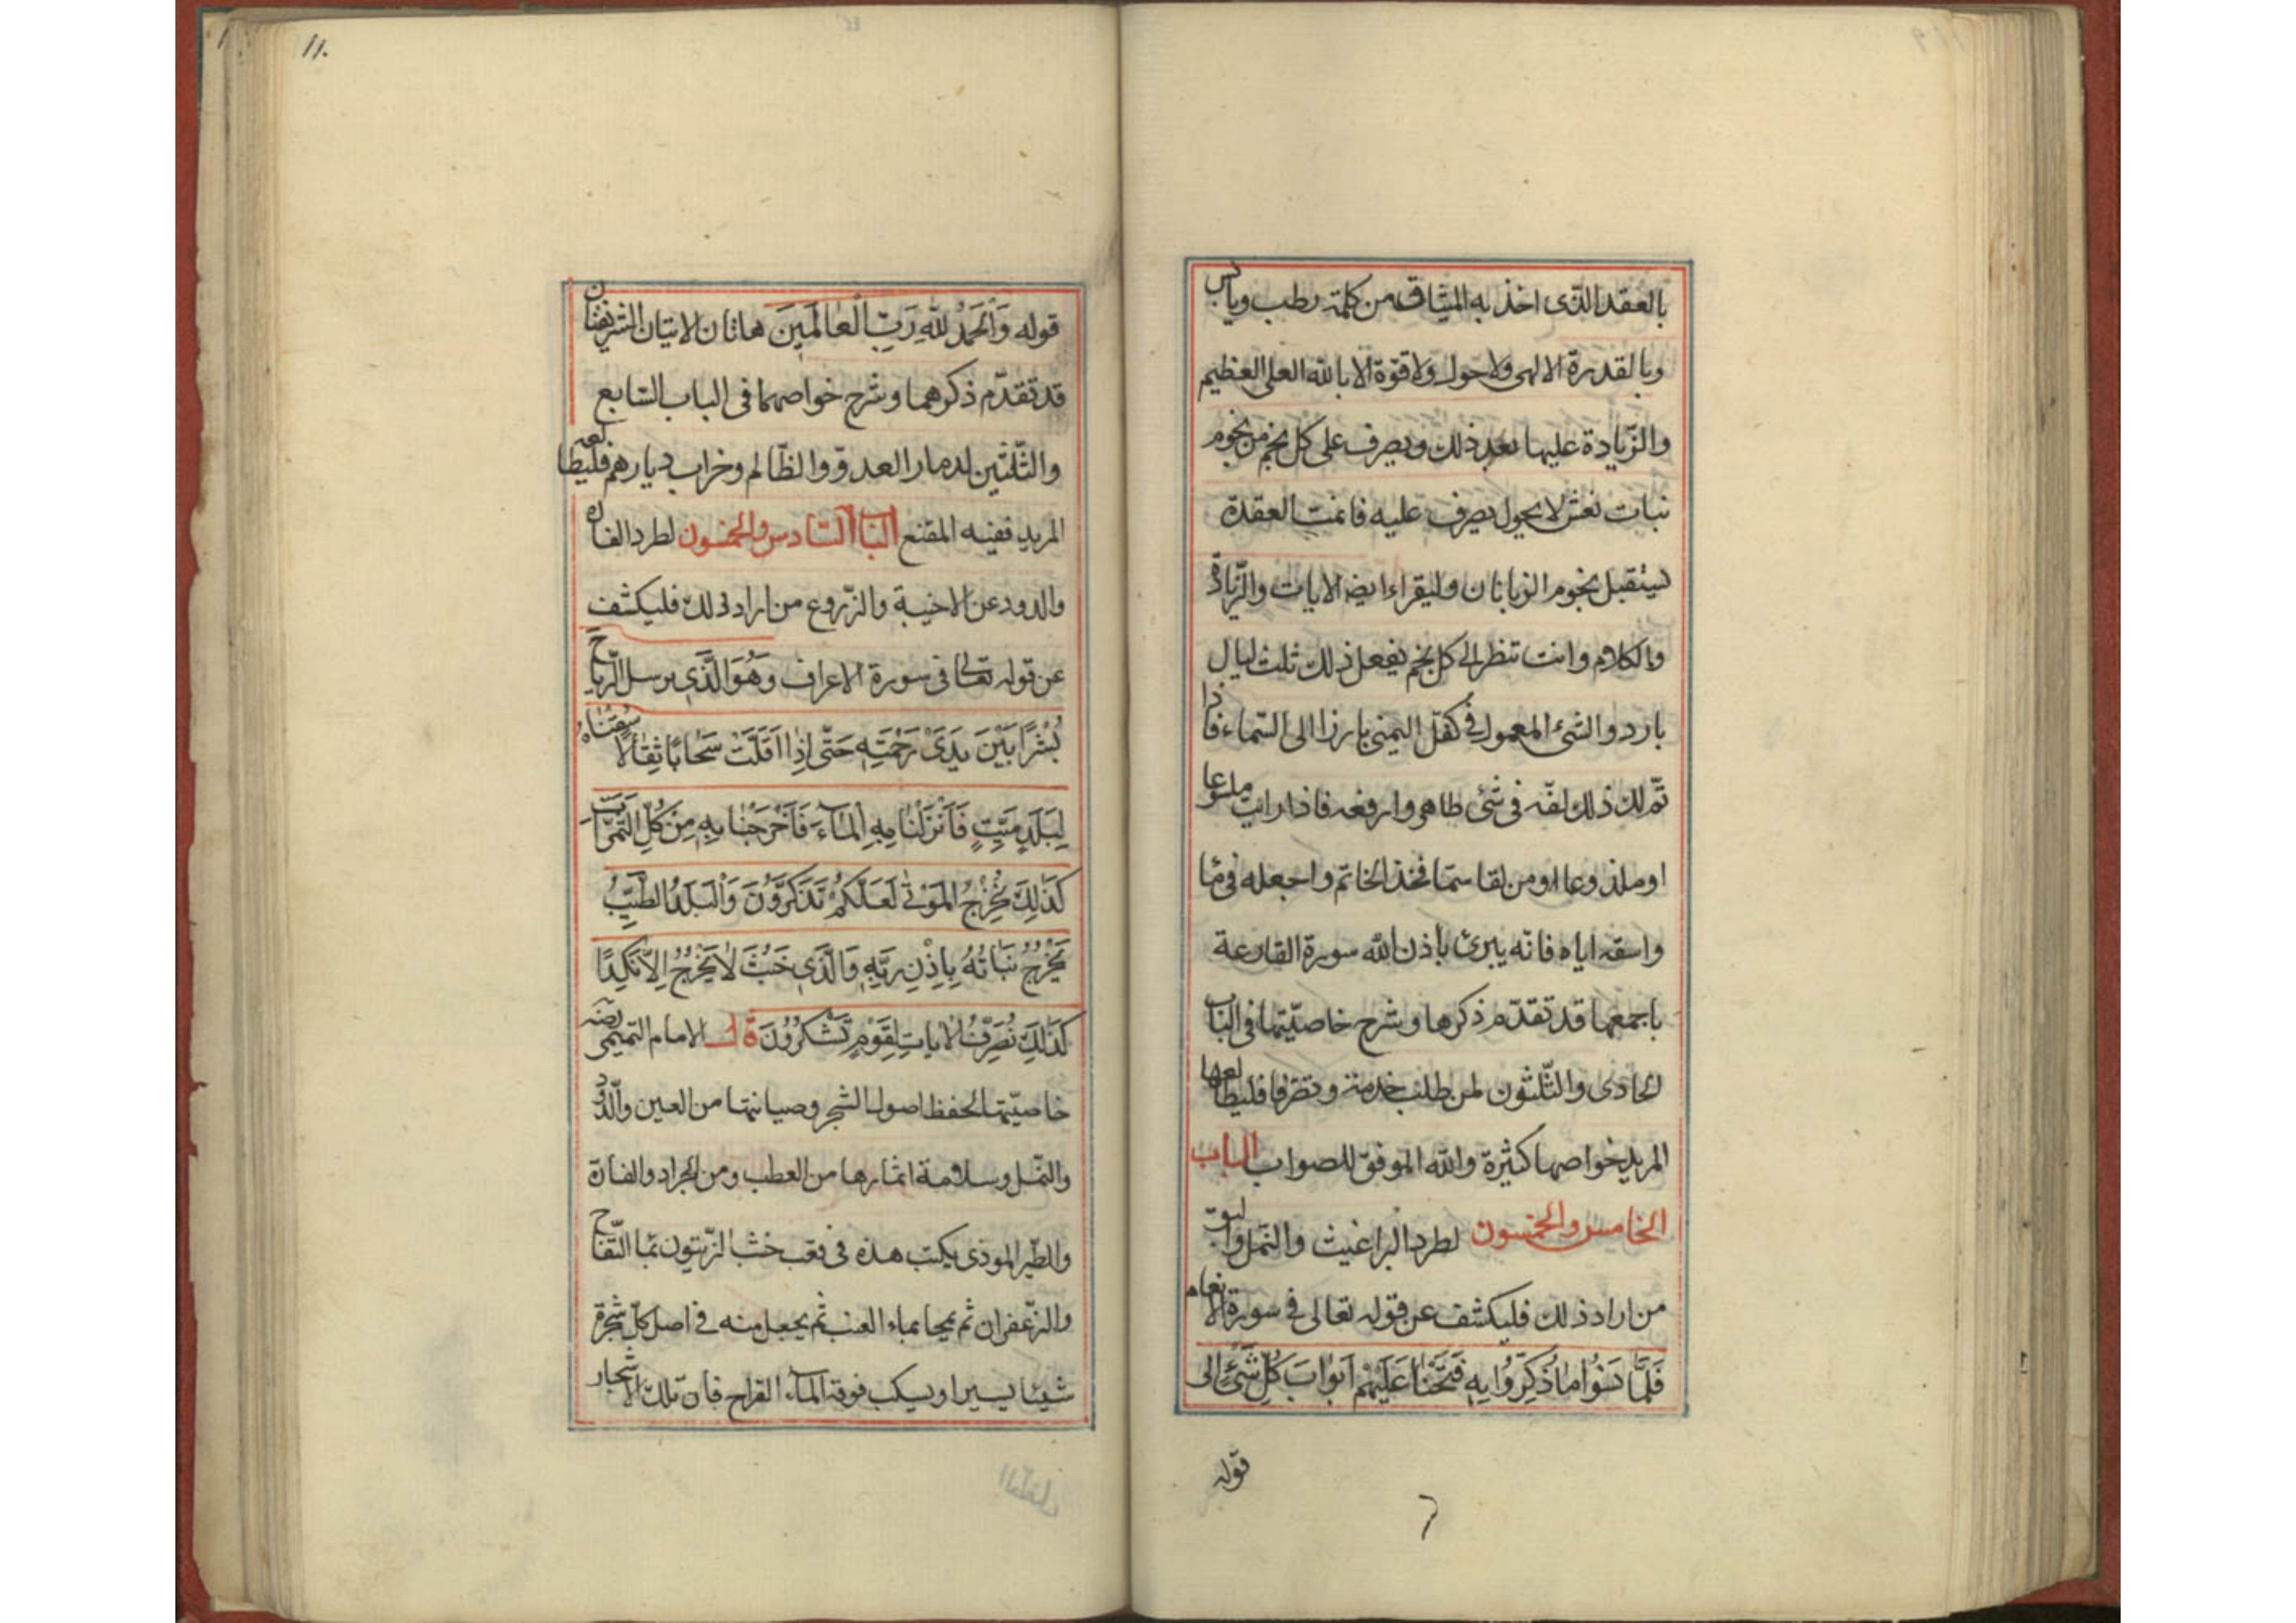 بالعقد الذى اخذ به الميثاق من كلمة رطب ويابس
وبالقدرة الالهى ولاحول ولاقوّة الا بالله العلى العظيم
والزّيادة عليها بعد ذلك ويصرف على كل نجم من نجوم
نبات نعش لا يحول يصرف عليه فاتمت العقدة
يستقبل نجوم الزبانان وليقراء ايضا الايات والزّيادة
والكلام وانت تنظر الى كل نجم يفعل ذلك ثلث ليال
بارد والشئ المعمول فى كفّك اليمنى بارزا الى السّماء فاذا
تمّ لك ذلك لفّه فى شئ طاهر وارفعه فاذا رايت ملسوعا
او ملذوعا اومن لقا سمّا فخذ الخاتم واجعله فى ماء
واسقه اياه فانّه يبرئ باذن الله سورة القارعة
باجمعها قد تقدّم ذكرها وشرح خاصيّتها فى الباب
الحادى والثّلثون لمن طلب خدمة وتصرفا فليطالعها
المريد خواصها كثيرة والله الموفق للصواب الباب
الخامس والخمسون لطرد البراغيث والنّمل والبق
من اراد ذلك فليكشف عن قوله تعالى فى سورة الانعام
فَلَمَّا نَسُوا مَا ذُكِّرُوا بِهِ فَتَحْنَا عَلَيْهِمْ اَبْوَابَ كُلِّ شَىْءٍ الى
قوله
١١٠
قوله وَالْحَمْدُ لِلّٰهِ رَبِّ الْعَالَمِينَ هاتان الايتان الشريفتان
قد تقدّم ذكرهما وشرح خواصهما فى الباب السّابع
والثّلثين لدمار العدوّ والظّالم وخراب ديارهم فليطالعه
المريد ففيه المقنع الباب السّادس والخمسون لطرد الفاره
والدود عن الاخبية والزّروع من اراد ذلك فليكشف
عن قوله تعالى فى سورة الاعراف وَهُوَ الَّذِى يرسل الرّياح
بُشْرًا بَيْنَ يَدَىْ رَحْمَتِهِ حَتّٰى اِذَا اَقَلَّتْ سَحَابًا ثِقَالًا سُقْنَاهُ
لِبَلَدٍ مَيِّتٍ فَاَنْزَلْنَا بِهِ الْمَاءَ فَاَخْرَجْنَا بِهِ مِنْ كُلِّ الثَّمَرَاتِ
كَذٰلِكَ نُخْرِجُ الْمَوْتٰى لَعَلَّكُمْ تَذَكَّرُونَ وَالْبَلَدُ الطَّيِّبُ
يَخْرُجُ نَبَاتُهُ بِاِذْنِ رَبِّهِ وَالَّذِى خَبُثَ لَا يَخْرُجُ اِلَّا نَكِدًا
كَذٰلِكَ نُصَرِّفُ الْاٰيَاتِ لِقَوْمٍ تَشْكُرُونَ قال الامام التميمى رضه
خاصيّتها لحفظ اصول الشجر وصيانتها من العين والدّود
والنّمل وسلامة اثمارها من العطب ومن الجراد والفارة
والطّير الموذى يكتب هذه فى قعب خشب الزّيتون بماء التّفاح
والزّعفران ثم يمحا بماء العنب ثم يجعل منه فى اصل كلّ شجرة
شيئا يسيرا ويسكب فوقه الماء القراح فانّ تلك الاشجار